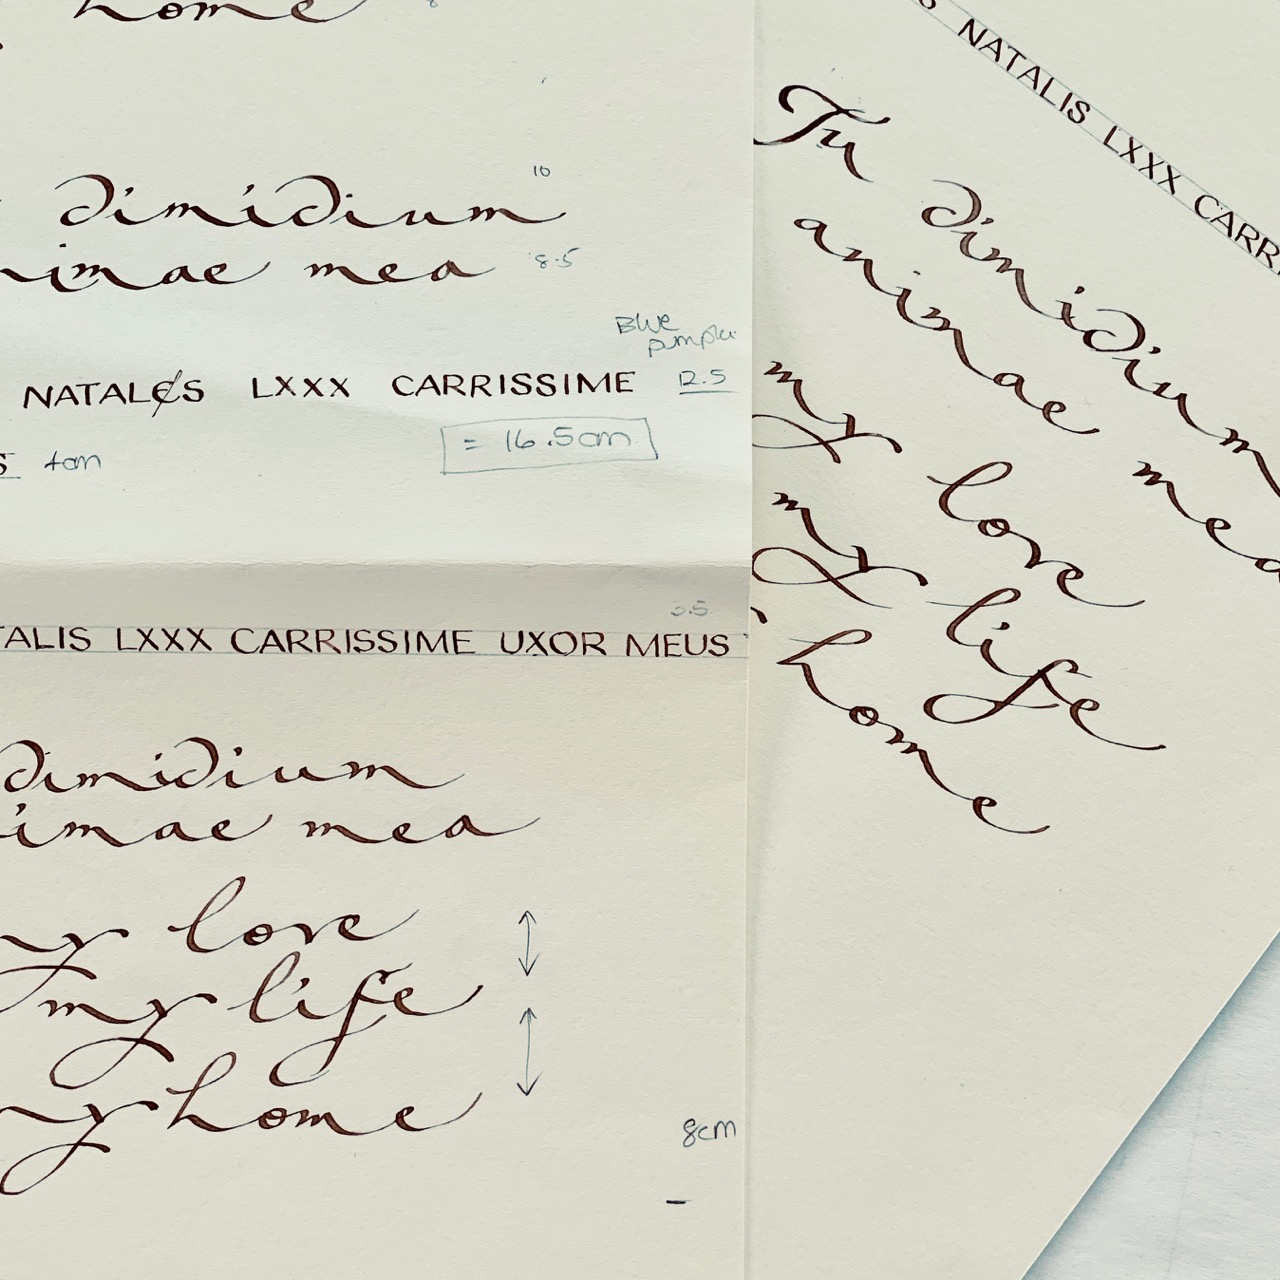 home 8
dimidium 10
nimae mea 8.5
Blue
NATALES LXXX CARRISSIME 12.5
= 16.5cm
S 4cm
3.5
TALIS LXXX CARRISSIME UXOR MEUS
dimidium
imae mea
my love
my life
my home
8cm
S NATALIS LXXX CARRI
Tu dimidium
animae mea
my love
my life
home